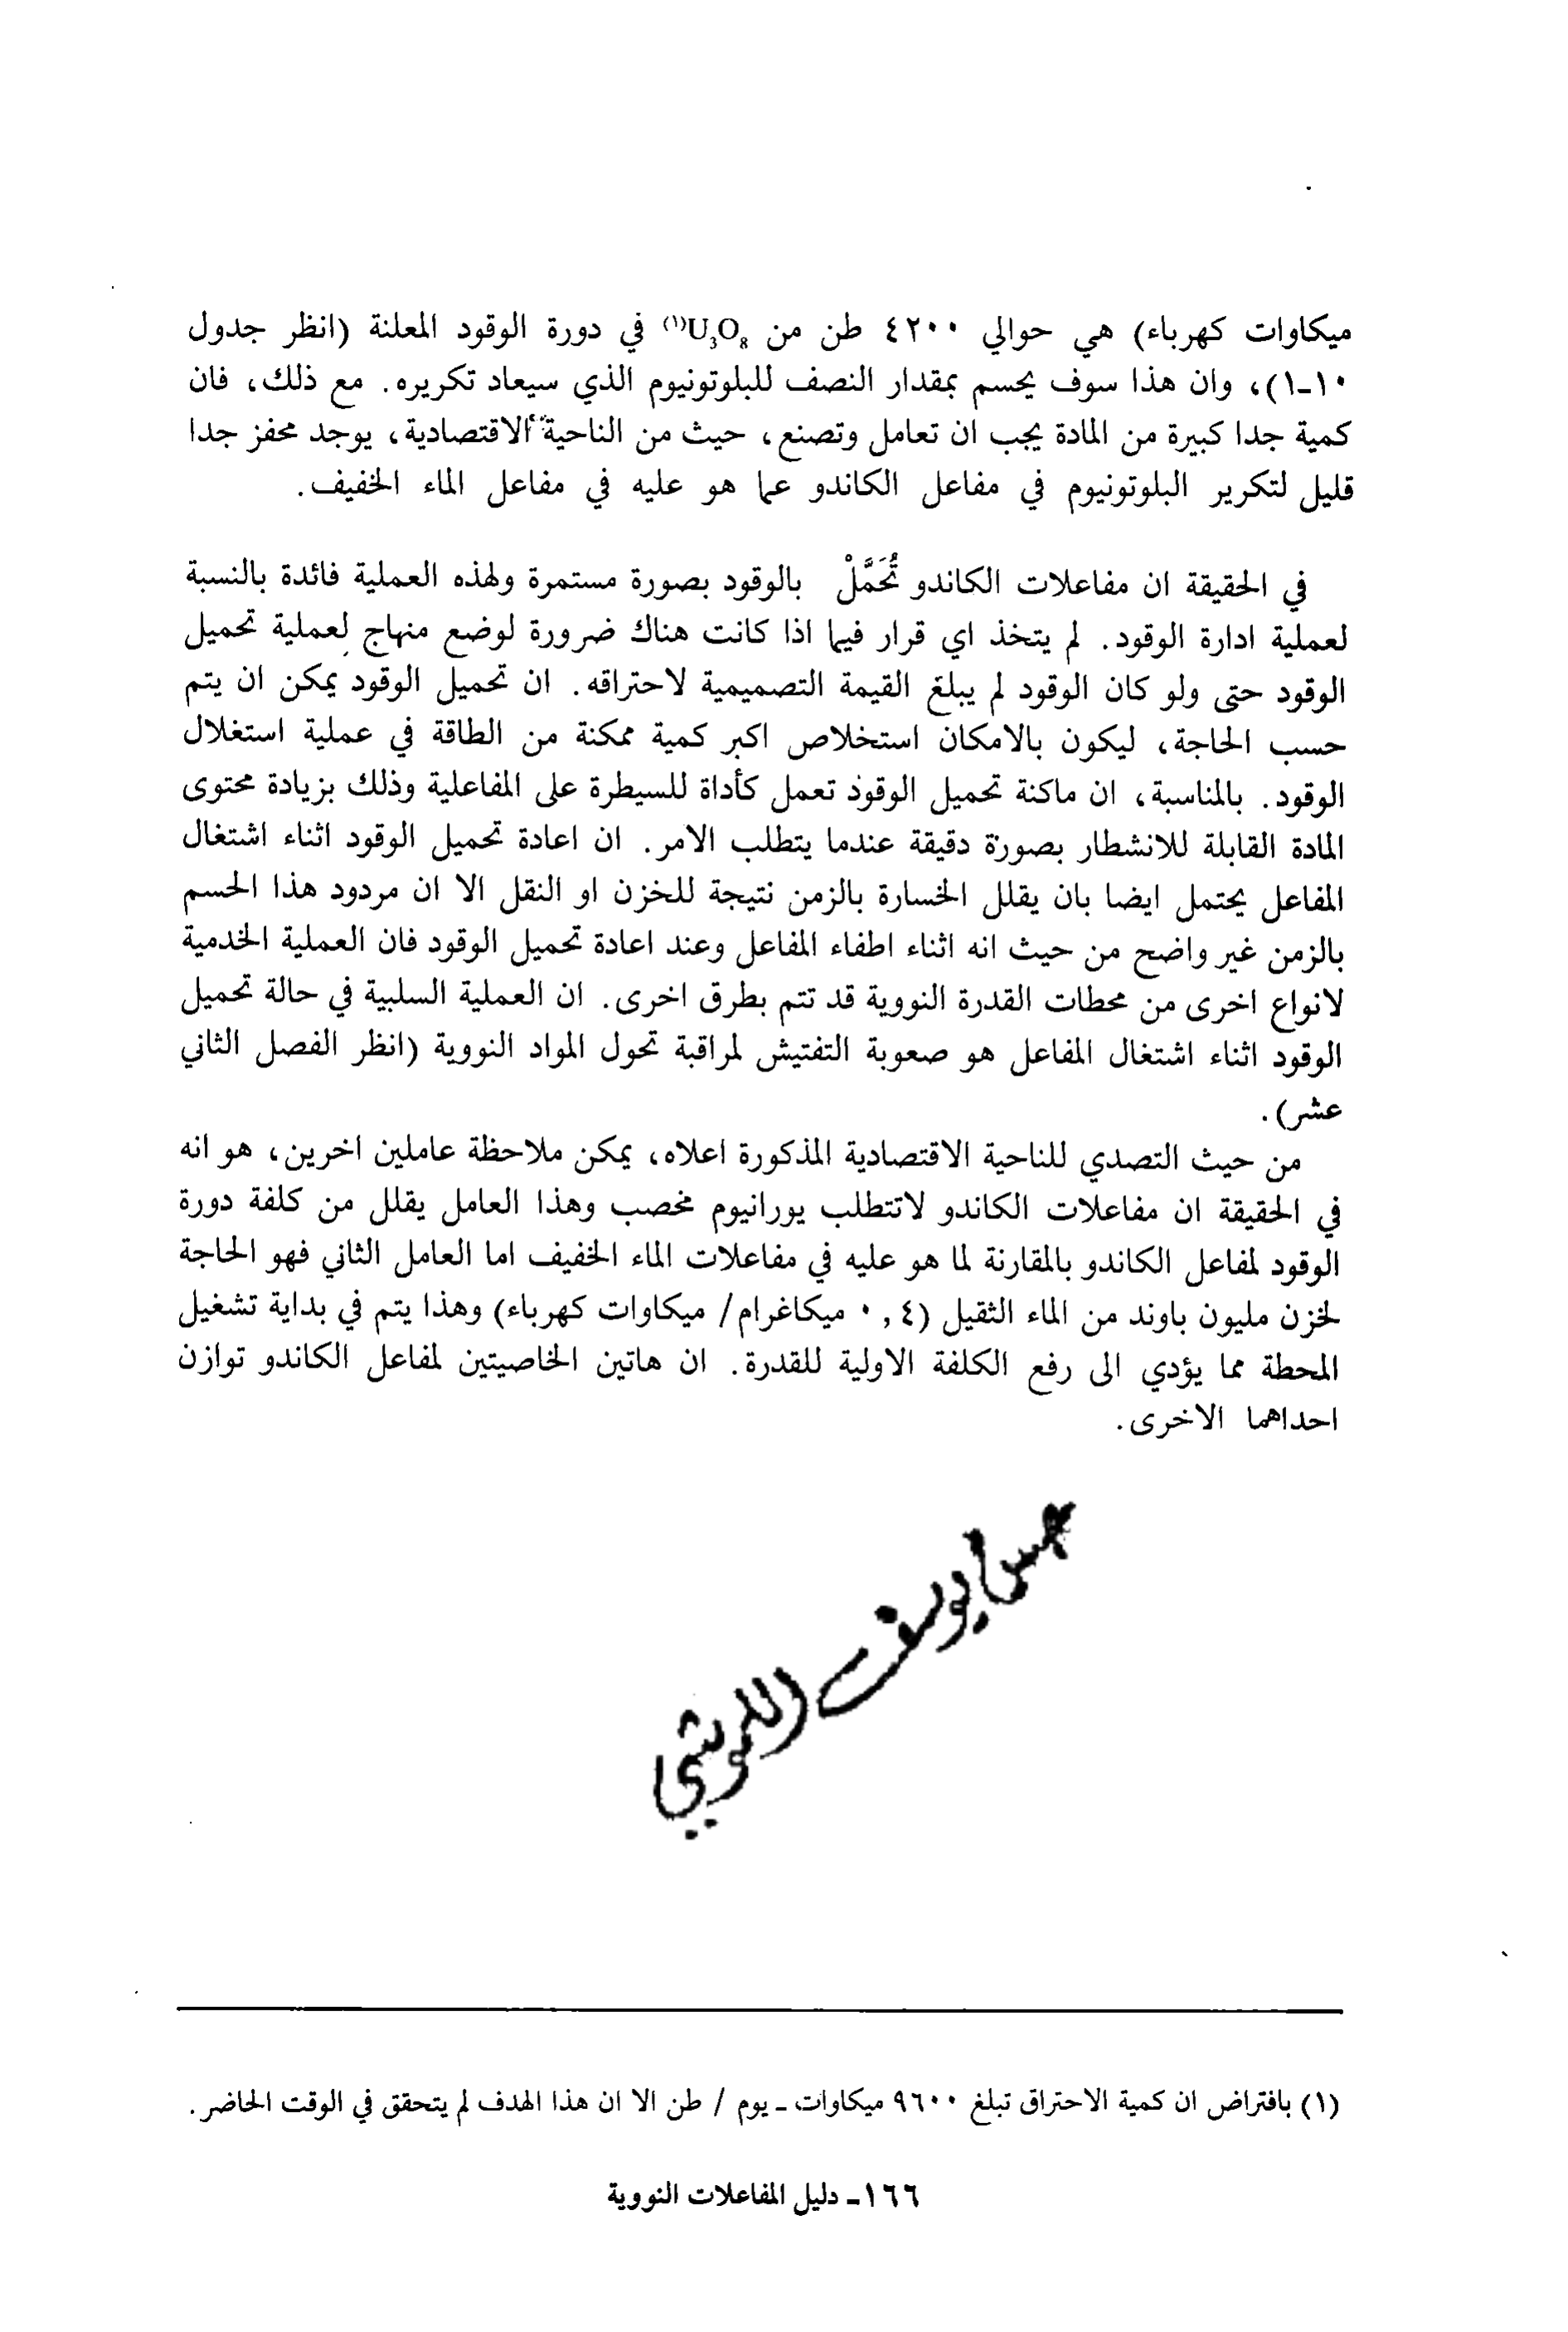 ميكاوات كهرباء) هي حوالي ٤٢٠٠ طن من U₃O₈⁽¹⁾ في دورة الوقود المعلنة (انظر جدول
١٠-١)، وان هذا سوف يحسم بمقدار النصف للبلوتونيوم الذي سيعاد تكريره. مع ذلك، فان
كمية جدا كبيرة من المادة يجب ان تعامل وتصنع، حيث من الناحية الاقتصادية، يوجد محفز جدا
قليل لتكرير البلوتونيوم في مفاعل الكاندو عما هو عليه في مفاعل الماء الخفيف.
في الحقيقة ان مفاعلات الكاندو تُحَمَّلْ بالوقود بصورة مستمرة ولهذه العملية فائدة بالنسبة
لعملية ادارة الوقود. لم يتخذ اي قرار فيما اذا كانت هناك ضرورة لوضع منهاج لعملية تحميل
الوقود حتى ولو كان الوقود لم يبلغ القيمة التصميمية لاحتراقه. ان تحميل الوقود يمكن ان يتم
حسب الحاجة، ليكون بالامكان استخلاص اكبر كمية ممكنة من الطاقة في عملية استغلال
الوقود. بالمناسبة، ان ماكنة تحميل الوقود تعمل كأداة للسيطرة على المفاعلية وذلك بزيادة محتوى
المادة القابلة للانشطار بصورة دقيقة عندما يتطلب الامر. ان اعادة تحميل الوقود اثناء اشتغال
المفاعل يحتمل ايضا بان يقلل الخسارة بالزمن نتيجة للخزن او النقل الا ان مردود هذا الحسم
بالزمن غير واضح من حيث انه اثناء اطفاء المفاعل وعند اعادة تحميل الوقود فان العملية الخدمية
لانواع اخرى من محطات القدرة النووية قد تتم بطرق اخرى. ان العملية السلبية في حالة تحميل
الوقود اثناء اشتغال المفاعل هو صعوبة التفتيش لمراقبة تحول المواد النووية (انظر الفصل الثاني
عشر).
من حيث التصدي للناحية الاقتصادية المذكورة اعلاه، يمكن ملاحظة عاملين اخرين، هو انه
في الحقيقة ان مفاعلات الكاندو لاتتطلب يورانيوم مخصب وهذا العامل يقلل من كلفة دورة
الوقود لمفاعل الكاندو بالمقارنة لما هو عليه في مفاعلات الماء الخفيف اما العامل الثاني فهو الحاجة
لخزن مليون باوند من الماء الثقيل (٤, ٠ ميكاغرام/ ميكاوات كهرباء) وهذا يتم في بداية تشغيل
المحطة مما يؤدي الى رفع الكلفة الاولية للقدرة. ان هاتين الخاصيتين لمفاعل الكاندو توازن
احداهما الاخرى.
يوسف
(١) بافتراض ان كمية الاحتراق تبلغ ٩٦٠٠ ميكاوات - يوم / طن الا ان هذا الهدف لم يتحقق في الوقت الحاضر.
١٦٦- دليل المفاعلات النووية